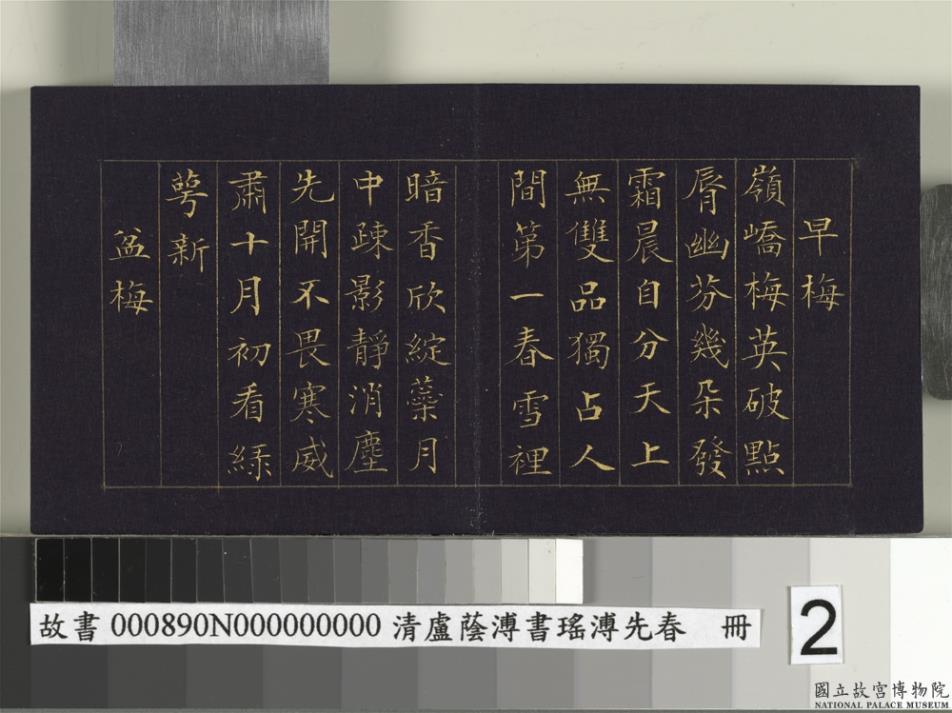 早梅
嶺嶠梅英破點
脣幽芬幾朵發
霜晨自分天上
無雙品獨占人
間第一春雪裡
暗香欣綻蘂月
中疎影靜消塵
先開不畏寒威
肅十月初看綠
蕚新
盆梅
故書 000890N000000000 清盧蔭溥書瑤溥先春 冊
2
國立故宮博物院
NATIONAL PALACE MUSEUM